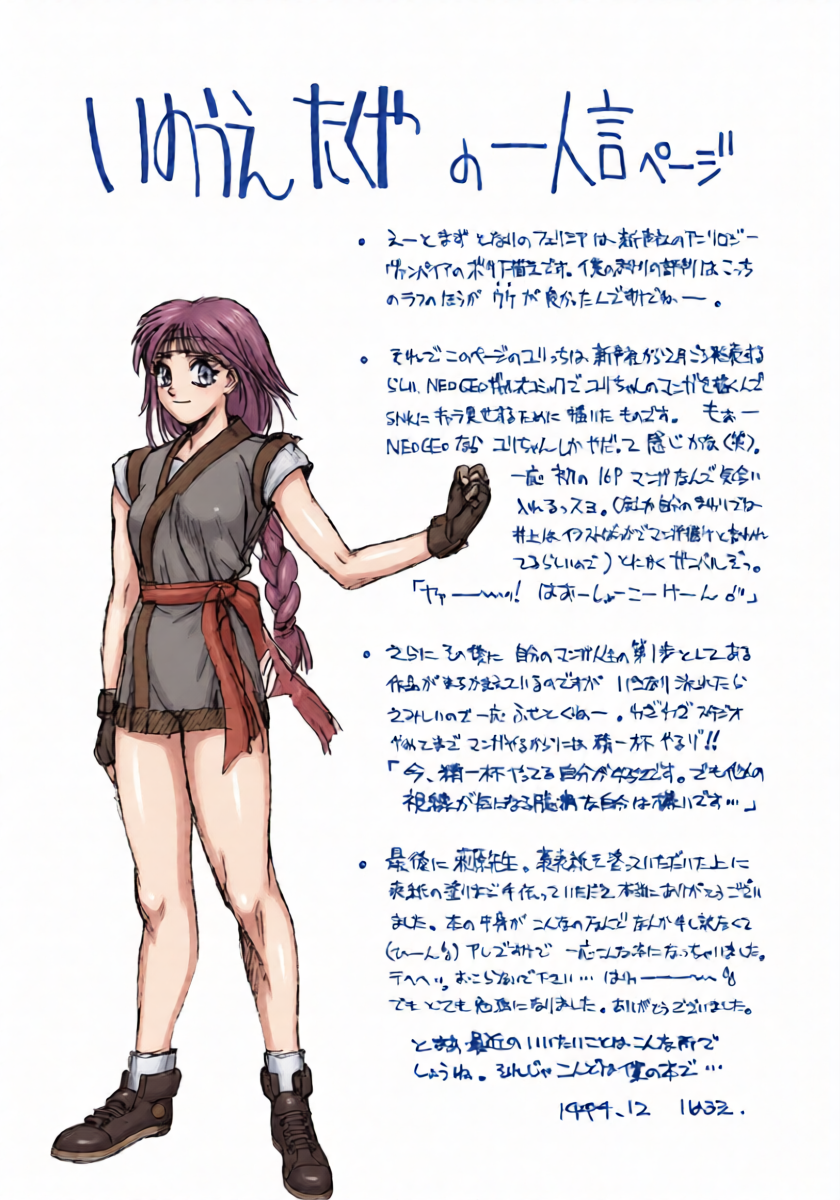 いのうえ たくや の一人言ページ
・えーとまず となりのフェリシアは、新声社のアンソロジー
ヴァンパイアのボツ下描きです。僕のまわりの評判はこっち
のラフのほうが ウケが良かったんですけどねー。
・それでこのページのユリっちは、新声社から2月ごろ発売する
らしい、NEOGEOギャルズコミックで ユリちゃんのマンガを描くんで
SNKに キャラ見せするために 描いた ものです。 もぉー
NEOGEOなら ユリちゃんしかやだって 感じかな(笑)。
一応 初の 16P マンガなんで 気合い
入れるっスヨ。(なんか自分のまわりでは
井上は、イラストばっかでマンガ描けと言われ
てるらしいので)とにかく ガンバルぞっ。
「ヤァーーッ! はおーしょーこーけーん」
・さらに その後に 自分のマンガ人生の第1歩としてある
作品がまちかまえているのですが いきなり 流れたら
さみしいので一応 ふせとくねー。わざわざ スタジオ
やめてまで マンガやるからには 精一杯 やるゾ!!
「今、精一杯やってる自分が好きです。でも他人の
視線が気になる臆病な自分は嫌いです…」
・最後に 萩原先生。裏表紙を塗っていただいた上に
表紙の塗りまで手伝っていただき 本当にありがとうござい
ました。本の中身が こんなのなんで なんか申し訳なくて
(ひーん) アレですけで 一応こんな本になっちゃいました。
テヘヘッ。おこらないで下さい… はわーーー
でも とても 勉強になりました。ありがとうございました。
とまあ 最近の いいたいことは こんな所で
しょうね。そんじゃ こんどは 僕の本で…
1994.12